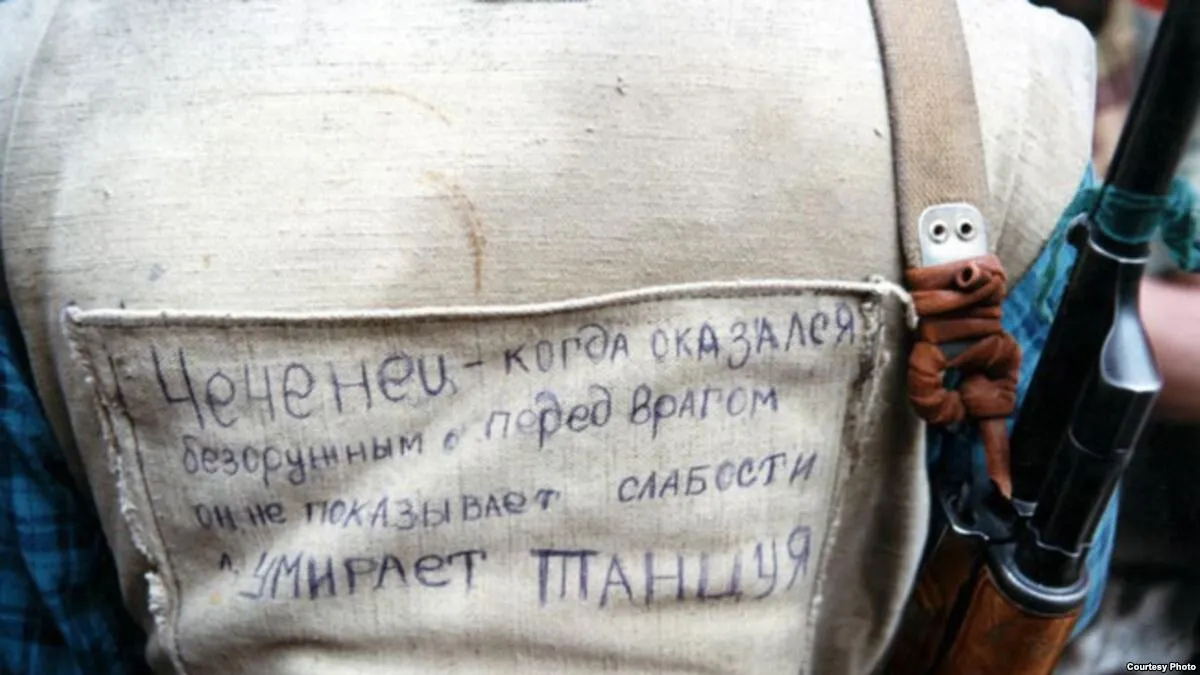 Чеченец - когда оказался
безоружным перед врагом
он не показывает слабости
а умирает танцуя
Courtesy Photo